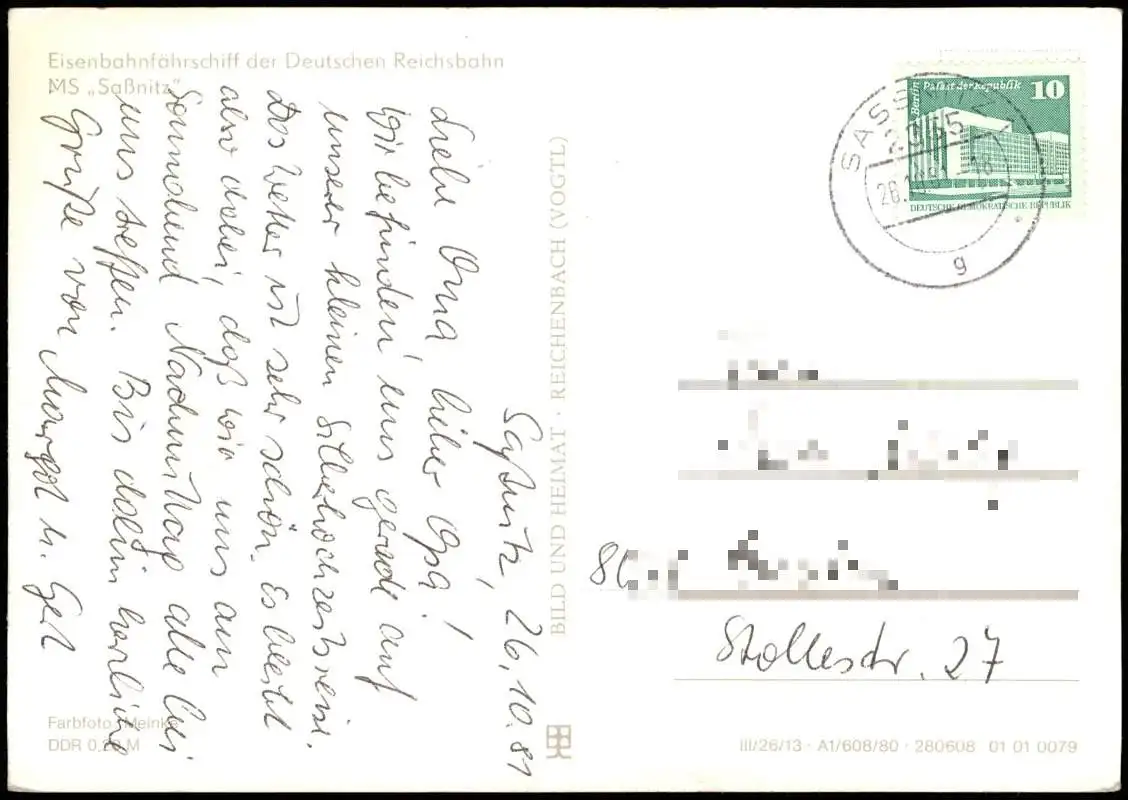 Eisenbahnfährschiff der Deutschen Reichsbahn
MS „Saßnitz"
Saßnitz, 26.10.81
Liebe Oma, lieber Opa!
Wir befinden uns gerade auf
unserer kleinen Silberhochzeitsreise.
Das Wetter ist sehr schön. Es bleibt
also dabei, daß wir uns am
Sonnabend Nachmittag alle bei
uns treffen. Bis dahin herzliche
Grüße von Margot u. Gert
Farbfoto: Meinke
DDR 0,20 M
BILD UND HEIMAT · REICHENBACH (VOGTL)
Berlin
Palast der Republik
10
DEUTSCHE DEMOKRATISCHE REPUBLIK
SASSNITZ
2355
26.10.81 -18
g
Stollestr. 27
III/26/13 · A1/608/80 · 280608 01 01 0079